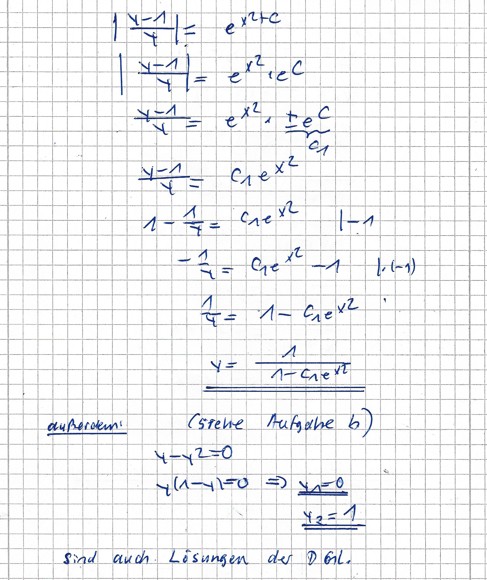 |(y-1)/y| = e^(x²+C)
|(y-1)/y| = e^(x²) · e^C
(y-1)/y = e^(x²) · ±e^C
C₁
(y-1)/y = C₁e^(x²)
1 - 1/y = C₁e^(x²) |-1
-1/y = C₁e^(x²) - 1 |·(-1)
1/y = 1 - C₁e^(x²)
y = 1/(1 - C₁e^(x²))
außerdem: (siehe Aufgabe b)
y-y²=0
y(1-y)=0 ⇒ y₁=0
y₂=1
sind auch Lösungen der DGL.